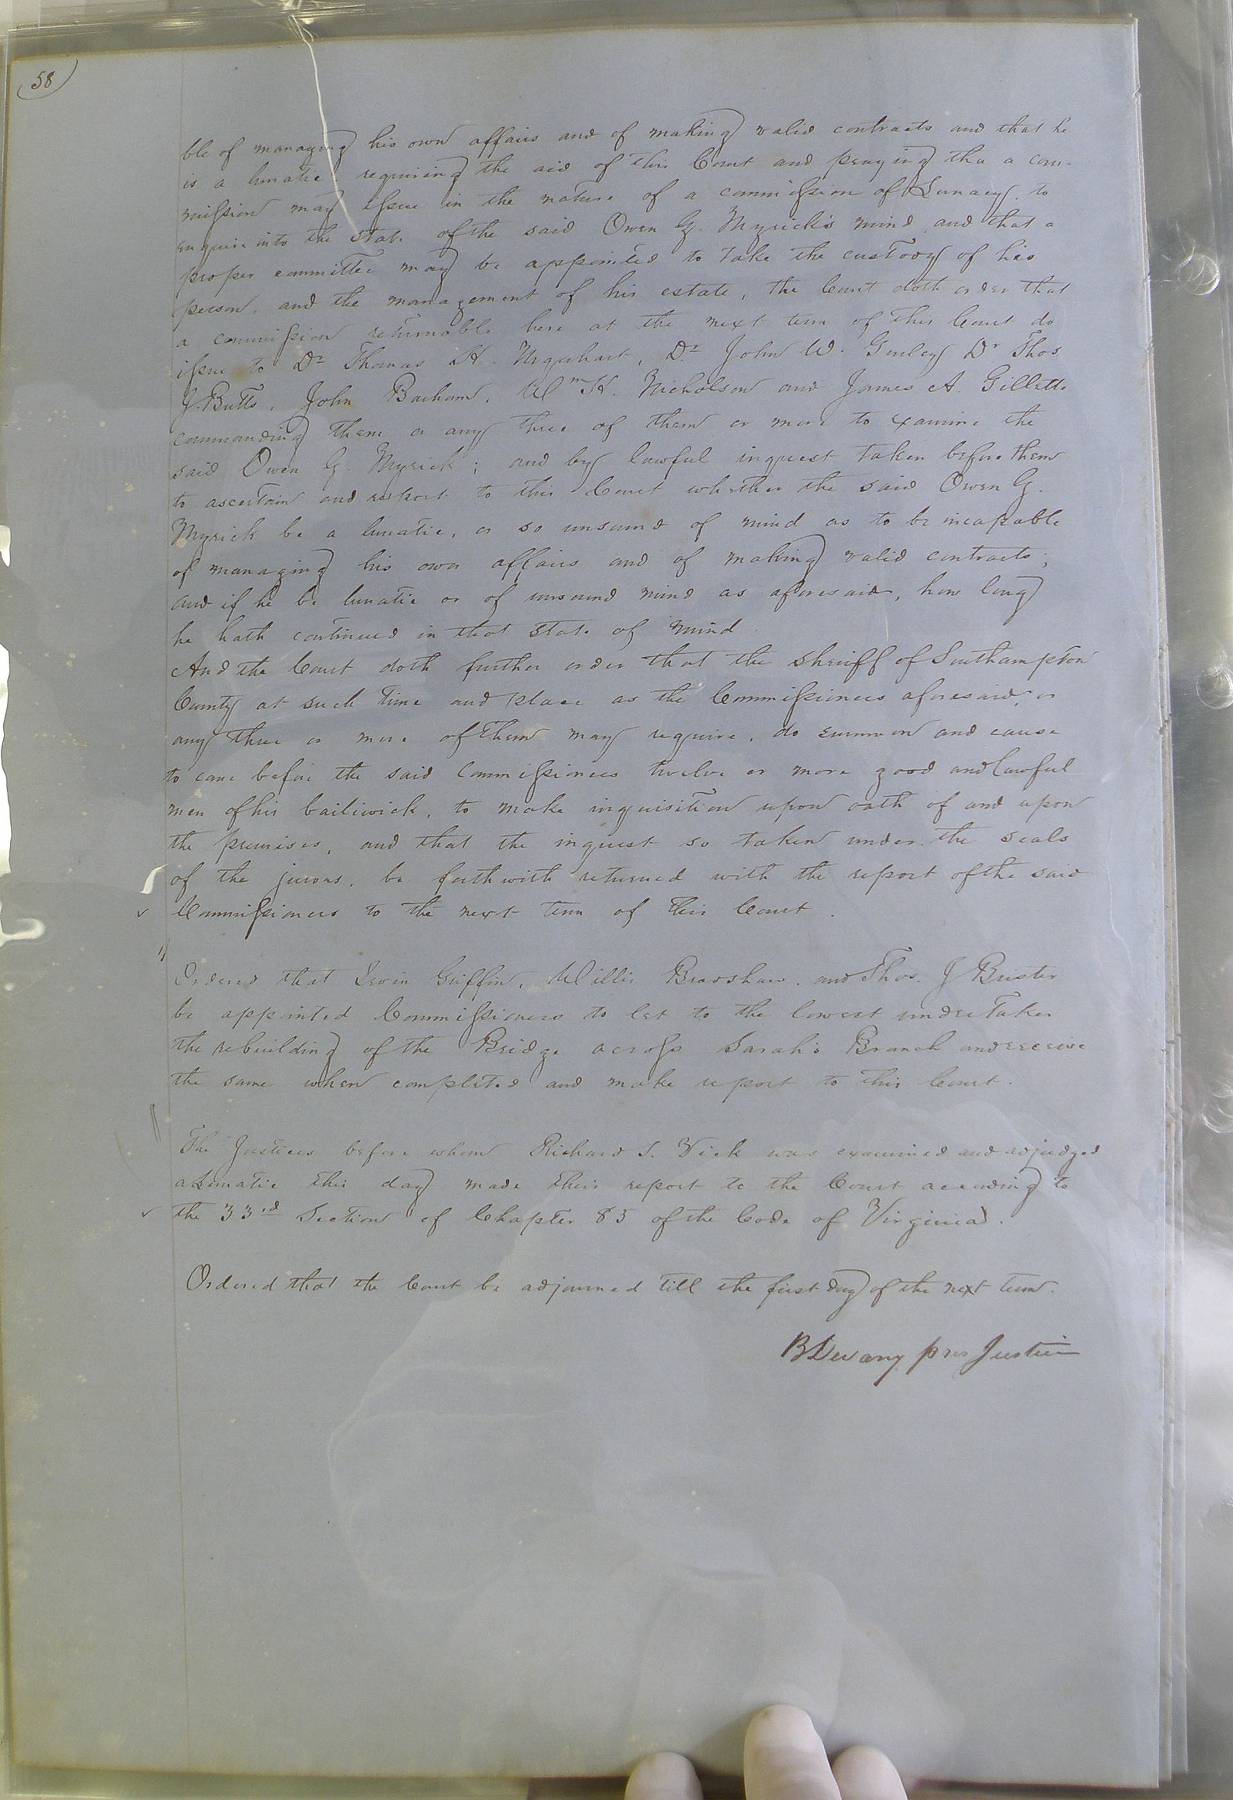 58
ble of managing his own affairs and of making valid contracts and that he
is a lunatic requiring the aid of this Court and praying tha a com-
mission may issue in the nature of a commission of Lunacy to
enquire into the state of the said Owen G. Myrick's mind and that a
proper committee may be appointed to take the custody of his
person, and the management of his estate, the Court doth order that
a commission returnable here at the next term of this Court do
issue to Dr Thomas H. Urquhart, Dr John W. Gurley Dr Thos
J. Butts, John Barham, Wm H. Nicholson and James A Gillette
commanding them or any three of them or more to examine the
said Owen G. Myrick; and by lawful inquest taken before them
to ascertain and report to this Court whether the said Owen G.
Myrick be a lunatic, or so unsound of mind as to be incapable
of managing his own affairs and of making valid contracts;
and if he be lunatic or of unsound mind as aforesaid, how long
he hath continued in that state of mind
And the Court doth further order that the sheriff of Southampton
County at such time and place as the Commissioners aforesaid, or
any three or more of them may require, do summon and cause
to come before the said Commissioners twelve or more good and lawful
men of his bailiwick, to make inquisition upon oath of and upon
the premises, and that the inquest so taken under the seals
of the jurors, be forthwith returned with the report of the said
Commissioners to the next term of this Court.
Ordered that Irwin Griffin, Willis Bradshaw, and Thos. J
be appointed Commissioners to let to the lowest undertaker
the rebuilding of the Bridge across Sarah's Branch and receive
the same when completed and make report to this Court.
The Justices before whom Richard S. Vick was examined and adjudged
a Lunatic this day made their report to the Court according to
the 33rd Section of Chapter 85 of the Code of Virginia.
Ordered that the Court be adjourned till the first day of the next term.
B Devany pres Justice